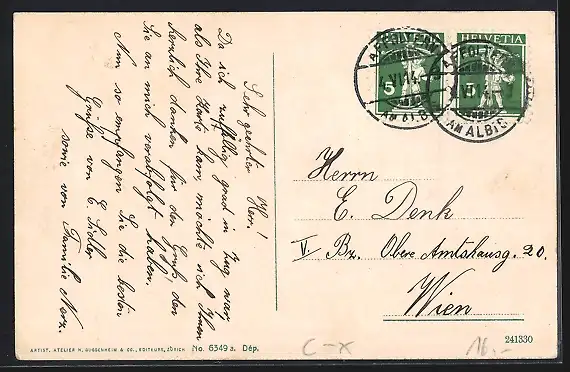 Sehr geehrter Herr!
Da ich zufällig grad in Zug war,
als Ihre Karte kam, möchte ich Ihnen
herzlich danken für den Gruß, den
Sie an mich verabfolgt haben.
Nun so empfangen Sie die besten
Grüße von E. Sidler
sowie von Familie
HELVETIA
5
5
AFFOLTERN
VI.14.
AM ALBIS
AFFOLTERN
VI.14.
AM ALBIS
Herrn
E. Denk
V Bz. Obere Amtshausg. 20.
Wien
ARTIST. ATELIER H. GUGGENHEIM & CO., EDITEURS, ZÜRICH No. 6349 a. Dép.
C-X
16.-
241330